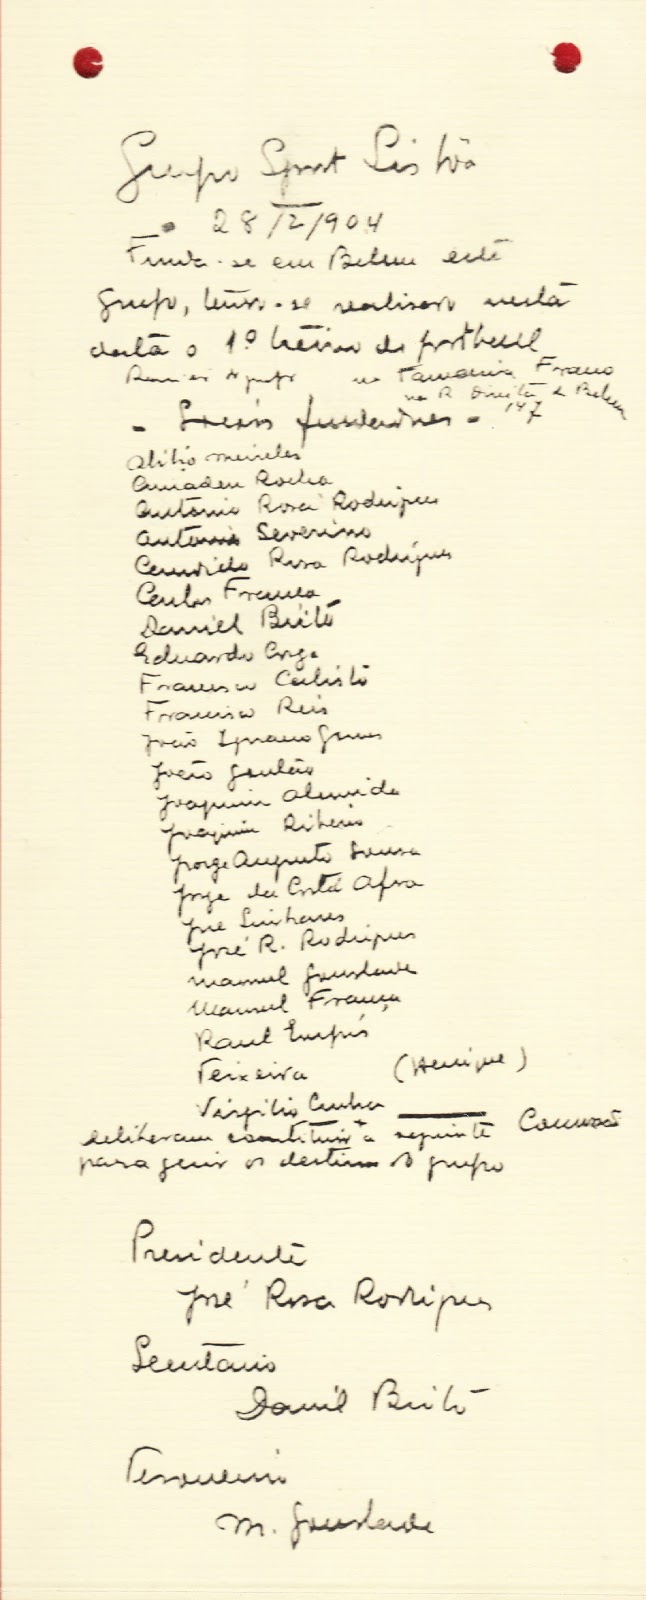 Grupo Sport Lisbôa
28/2/904
Funda-se em Belem este
grupo, tendo-se realisado nesta
data o 1º treino de football
Reunião do grupo na Farmacia Franco
na R. Direita de Belem
147
- Socios fundadores -
Abilio Meireles
Amadeu Rocha
Antonio Rosa Rodrigues
Antonio Severino
Candido Rosa Rodrigues
Carlos França
Daniel Brito
Eduardo Corga
Francisco Calisto
Francisco Reis
João Ignacio Gomes
João Goulão
Joaquim Almeida
Joaquim Ribeiro
Jorge Augusto Sousa
Jorge da Costa Afra
José Linhares
José R. Rodrigues
Manuel Gourlade
Manuel França
Raul Empis
Teixeira (Henrique)
Virgilio Cunha
deliberam constituir a seguinte Comissão
para gerir os destinos do grupo
Presidente
José Rosa Rodrigues
Secretario
Daniel Brito
Tesoureiro
M. Gourlade